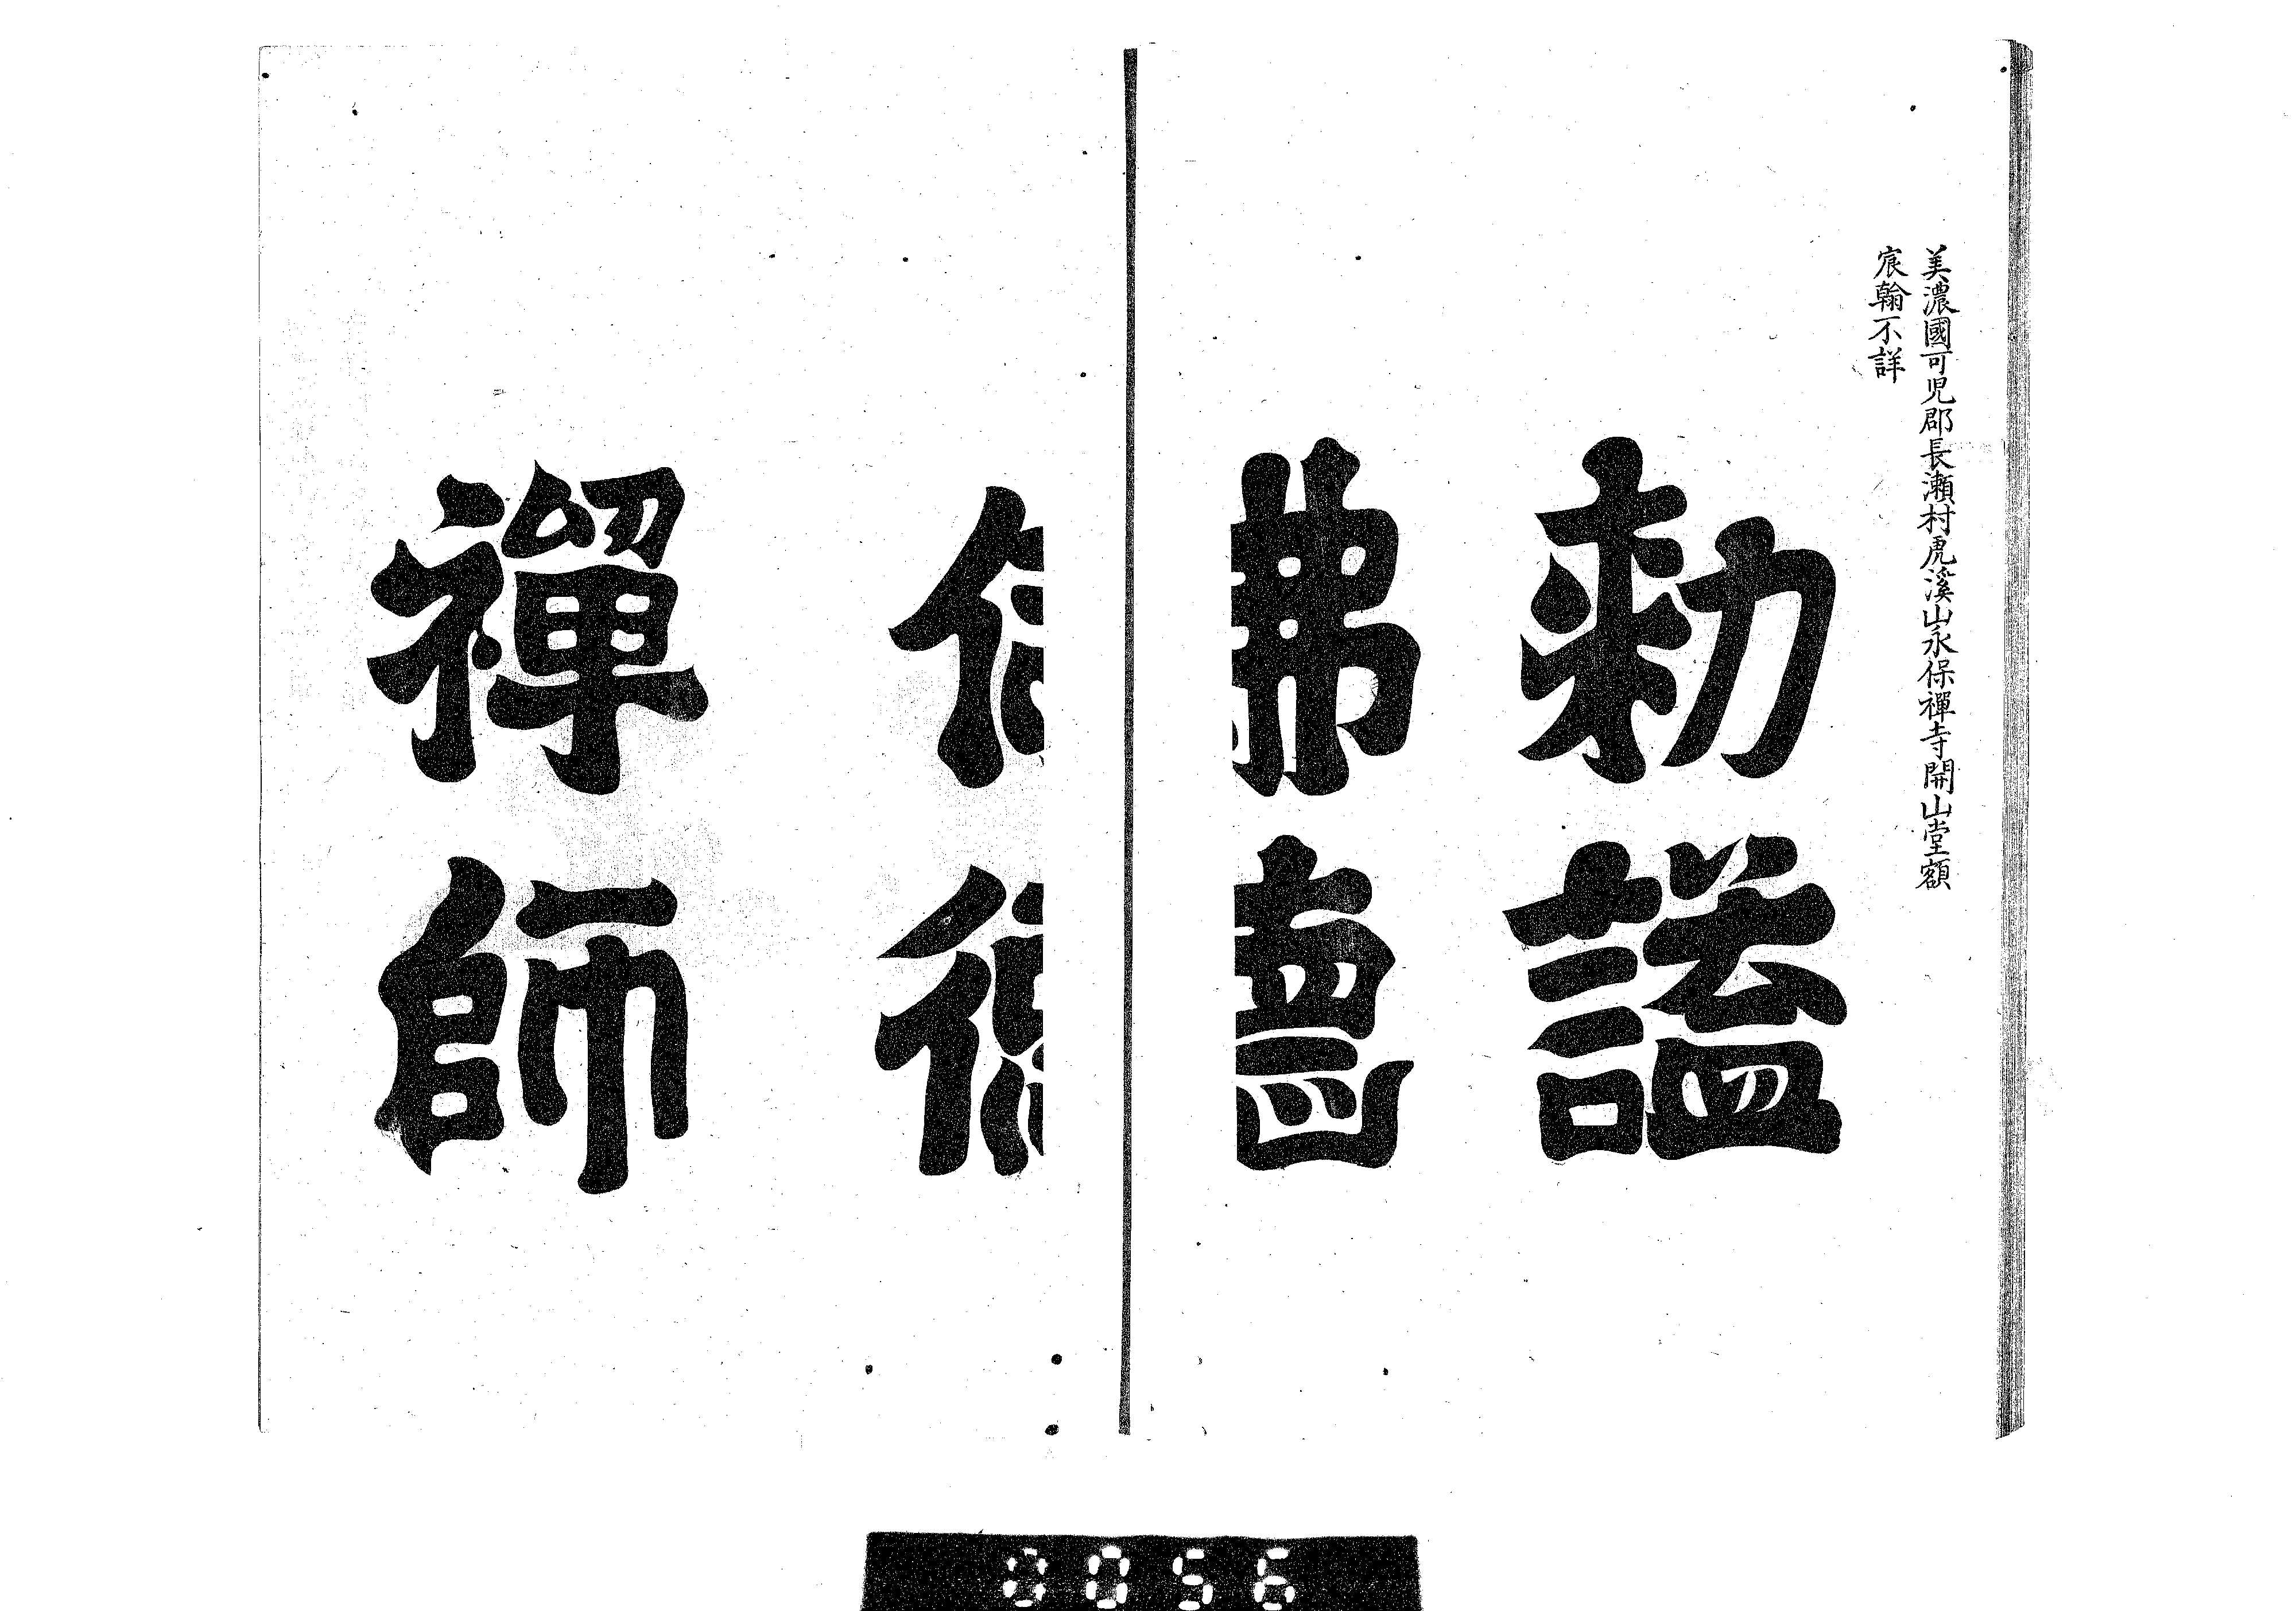 美濃國可児郡長瀬村虎溪山永保禪寺開山堂額
宸翰不詳
勅謚
佛德
禪師
0056